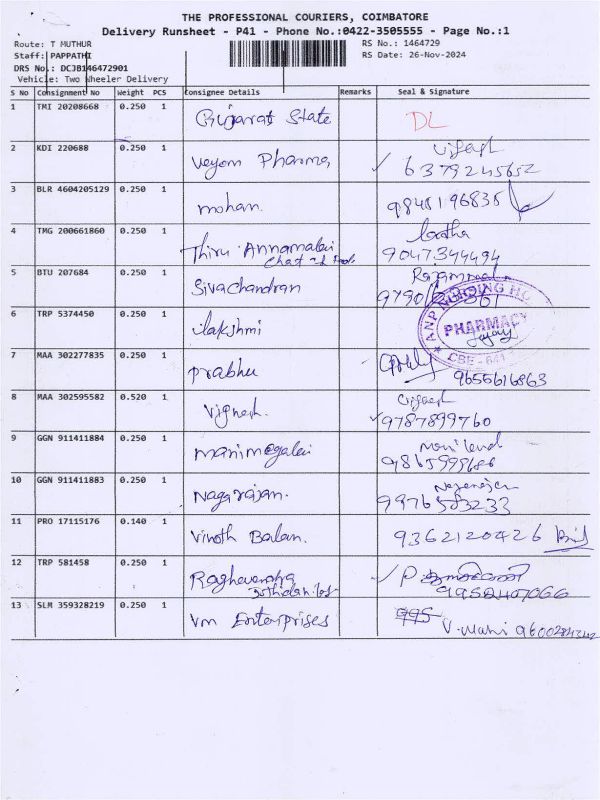 THE PROFESSIONAL COURIERS, COIMBATORE
Delivery Runsheet - P41 - Phone No.:0422-3505555 - Page No.:1
Route: T MUTHUR
RS No.: 1464729
Staff: PAPPATHI
RS Date: 26-Nov-2024
DRS No.: DCJB146472901
Vehicle: Two Wheeler Delivery
S No Consignment No Weight PCS Consignee Details Remarks Seal & Signature
1 TMI 20208668 0.250 1 Gujarat State DL
2 KDI 220688 0.250 1 Veyom Pharma,
6379245652
3 BLR 4604205129 0.250 1 mohan. 9845196835
4 TMG 200661860 0.250 1 Thiru Annamalai
9047344494
5 BTU 207684 0.250 1 Sivachandran
6 TRP 5374450 0.250 1 ilakshmi
PHARMACY
7 MAA 302277835 0.250 1 prabhu
9655616863
8 MAA 302595582 0.520 1 Vignesh.
9787899760
9 GGN 911411884 0.250 1 manimegalai
10 GGN 911411883 0.250 1 Nagarajan.
11 PRO 17115176 0.140 1 Vinoth Balan. 9362120426
12 TRP 581458 0.250 1 Raghavendra
13 SLM 359328219 0.250 1 Vm Enterprises
V. Mani